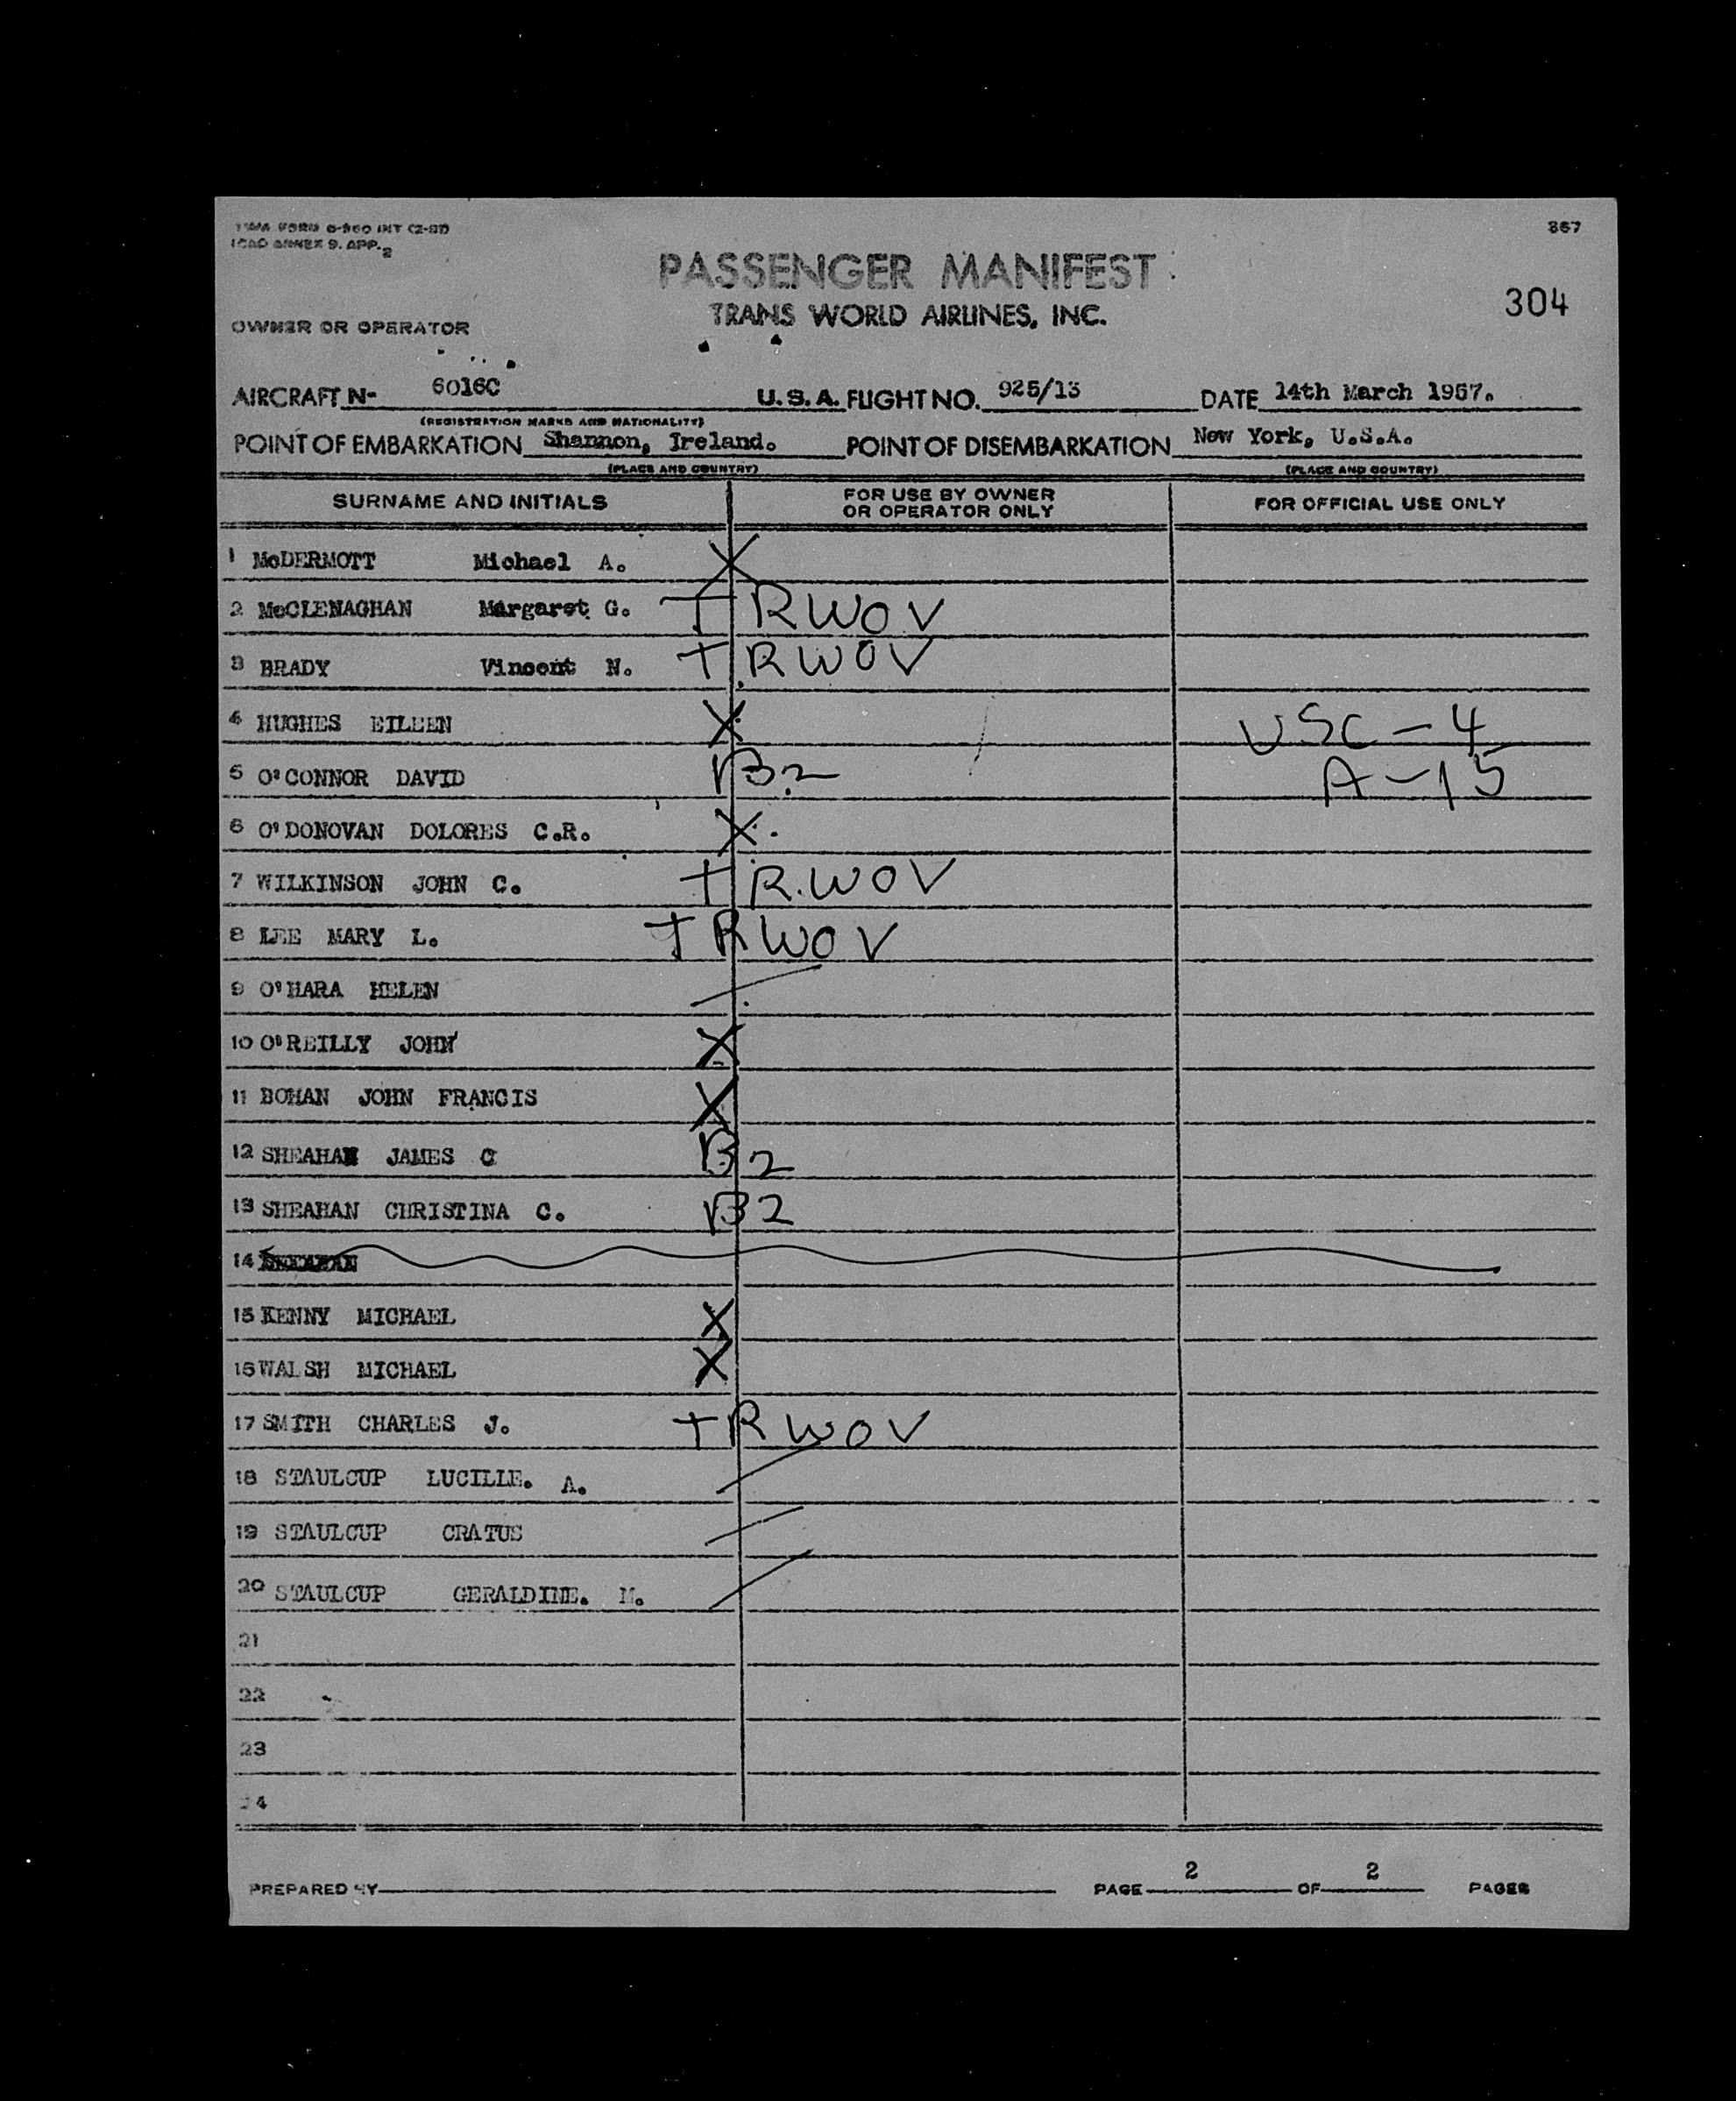 TWA FORM 0-960 INT (2-57)
ICAO ANNEX 9. APP. 2
367
PASSENGER MANIFEST
TRANS WORLD AIRLINES, INC.
304
OWNER OR OPERATOR
AIRCRAFT N- 6016C U. S. A. FLIGHT NO. 925/13 DATE 14th March 1957.
(REGISTRATION MARKS AND NATIONALITY)
POINT OF EMBARKATION Shannon, Ireland. POINT OF DISEMBARKATION New York, U.S.A.
(PLACE AND COUNTRY) (PLACE AND COUNTRY)
SURNAME AND INITIALS FOR USE BY OWNER OR OPERATOR ONLY FOR OFFICIAL USE ONLY
1 McDERMOTT Michael A. X
2 McCLENAGHAN Margaret G. + RWOV
3 BRADY Vincent N. + RWOV
4 HUGHES EILEEN X USC - 4
5 O'CONNOR DAVID B2 A - 15
6 O'DONOVAN DOLORES C.R. X
7 WILKINSON JOHN C. + R.WOV
8 LEE MARY L. + RWOV
9 O'HARA HELEN /
10 O'REILLY JOHN X
11 BOHAN JOHN FRANCIS X
12 SHEAHAN JAMES C B2
13 SHEAHAN CHRISTINA C. B2
14
15 KENNY MICHAEL X
16 WALSH MICHAEL X
17 SMITH CHARLES J. + RWOV
18 STAULCUP LUCILLE. A. /
19 STAULCUP CRATUS /
20 STAULCUP GERALDINE. M. /
21
22
23
24
PREPARED BY PAGE 2 OF 2 PAGES